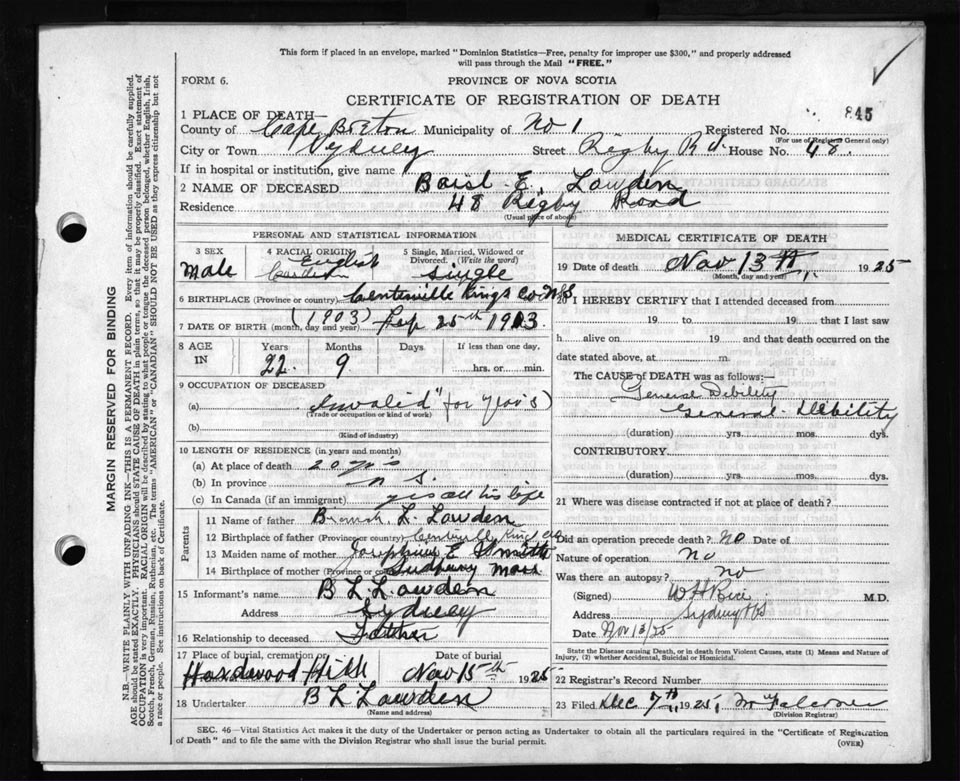 This form if placed in an envelope, marked "Dominion Statistics—Free, penalty for improper use $300," and properly addressed
will pass through the Mail "FREE."
FORM 6.
PROVINCE OF NOVA SCOTIA
CERTIFICATE OF REGISTRATION OF DEATH
845
1 PLACE OF DEATH—
County of Cape Breton Municipality of No 1 Registered No.
(For use of Registrar General only)
City or Town Sydney Street Rigby Rd. House No. 48.
If in hospital or institution, give name
2 NAME OF DECEASED Basil E. Lowden
Residence 48 Rigby Road
(Usual place of abode)
PERSONAL AND STATISTICAL INFORMATION
3 SEX Male
4 RACIAL ORIGIN English
5 Single, Married, Widowed or Divorced. (Write the word) Single
6 BIRTHPLACE (Province or country) Centerville Kings Co N S
(1903)
7 DATE OF BIRTH (month, day and year) 25th 1903.
8 AGE IN Years 22. Months 9 Days If less than one day, hrs. or min.
9 OCCUPATION OF DECEASED
(a) "Invalid" (for years)
(Trade or occupation or kind of work)
(b)
(Kind of industry)
10 LENGTH OF RESIDENCE (in years and months)
(a) At place of death 20 yrs
(b) In province N S.
(c) In Canada (if an immigrant) yes all his life
Parents
11 Name of father L. Lowden
12 Birthplace of father (Province or country) Kings Co
13 Maiden name of mother Josephine E Smith
14 Birthplace of mother (Province or co Mass
15 Informant's name B L Lowden
Address Sydney
16 Relationship to deceased Father
17 Place of burial, cremation or Hardwood Hill
Date of burial Nov 15th 1925
18 Undertaker B L Lowden
(Name and address)
MEDICAL CERTIFICATE OF DEATH
19 Date of death Nov 13th, 1925
(Month, day and year)
20 I HEREBY CERTIFY that I attended deceased from
19 to 19 that I last saw
h alive on 19 and that death occurred on the
date stated above, at m
The CAUSE of DEATH was as follows:—
General Debility
General Debility
(duration) yrs. mos. dys.
CONTRIBUTORY
(duration) yrs. mos. dys.
21 Where was disease contracted if not at place of death?
Did an operation precede death? No Date of
Nature of operation No
Was there an autopsy? No
(Signed) W H Rice M.D.
Address Sydney N S
Date Nov 13/25
State the Disease causing Death, or in death from Violent Causes, state (1) Means and Nature of
Injury, (2) whether Accidental, Suicidal or Homicidal.
22 Registrar's Record Number
23 Filed Dec 7th 1925,
(Division Registrar)
SEC. 46—Vital Statistics Act makes it the duty of the Undertaker or person acting as Undertaker to obtain all the particulars required in the "Certificate of Registration
of Death" and to file the same with the Division Registrar who shall issue the burial permit.
(OVER)
MARGIN RESERVED FOR BINDING
N.B.—WRITE PLAINLY WITH UNFADING INK—THIS IS A PERMANENT RECORD. Every item of information should be carefully supplied.
AGE should be stated EXACTLY. PHYSICIANS should STATE CAUSE OF DEATH in plain terms, so that it may be properly classified. Exact statement of
OCCUPATION is very important. RACIAL ORIGIN will be described by stating to what people or tongue the deceased person belonged, whether English, Irish,
Scotch, French, German, Russian, Ruthenian, etc. The terms "AMERICAN" or "CANADIAN" SHOULD NOT BE USED as they express citizenship but not
a race or people. See instructions on back of Certificate.